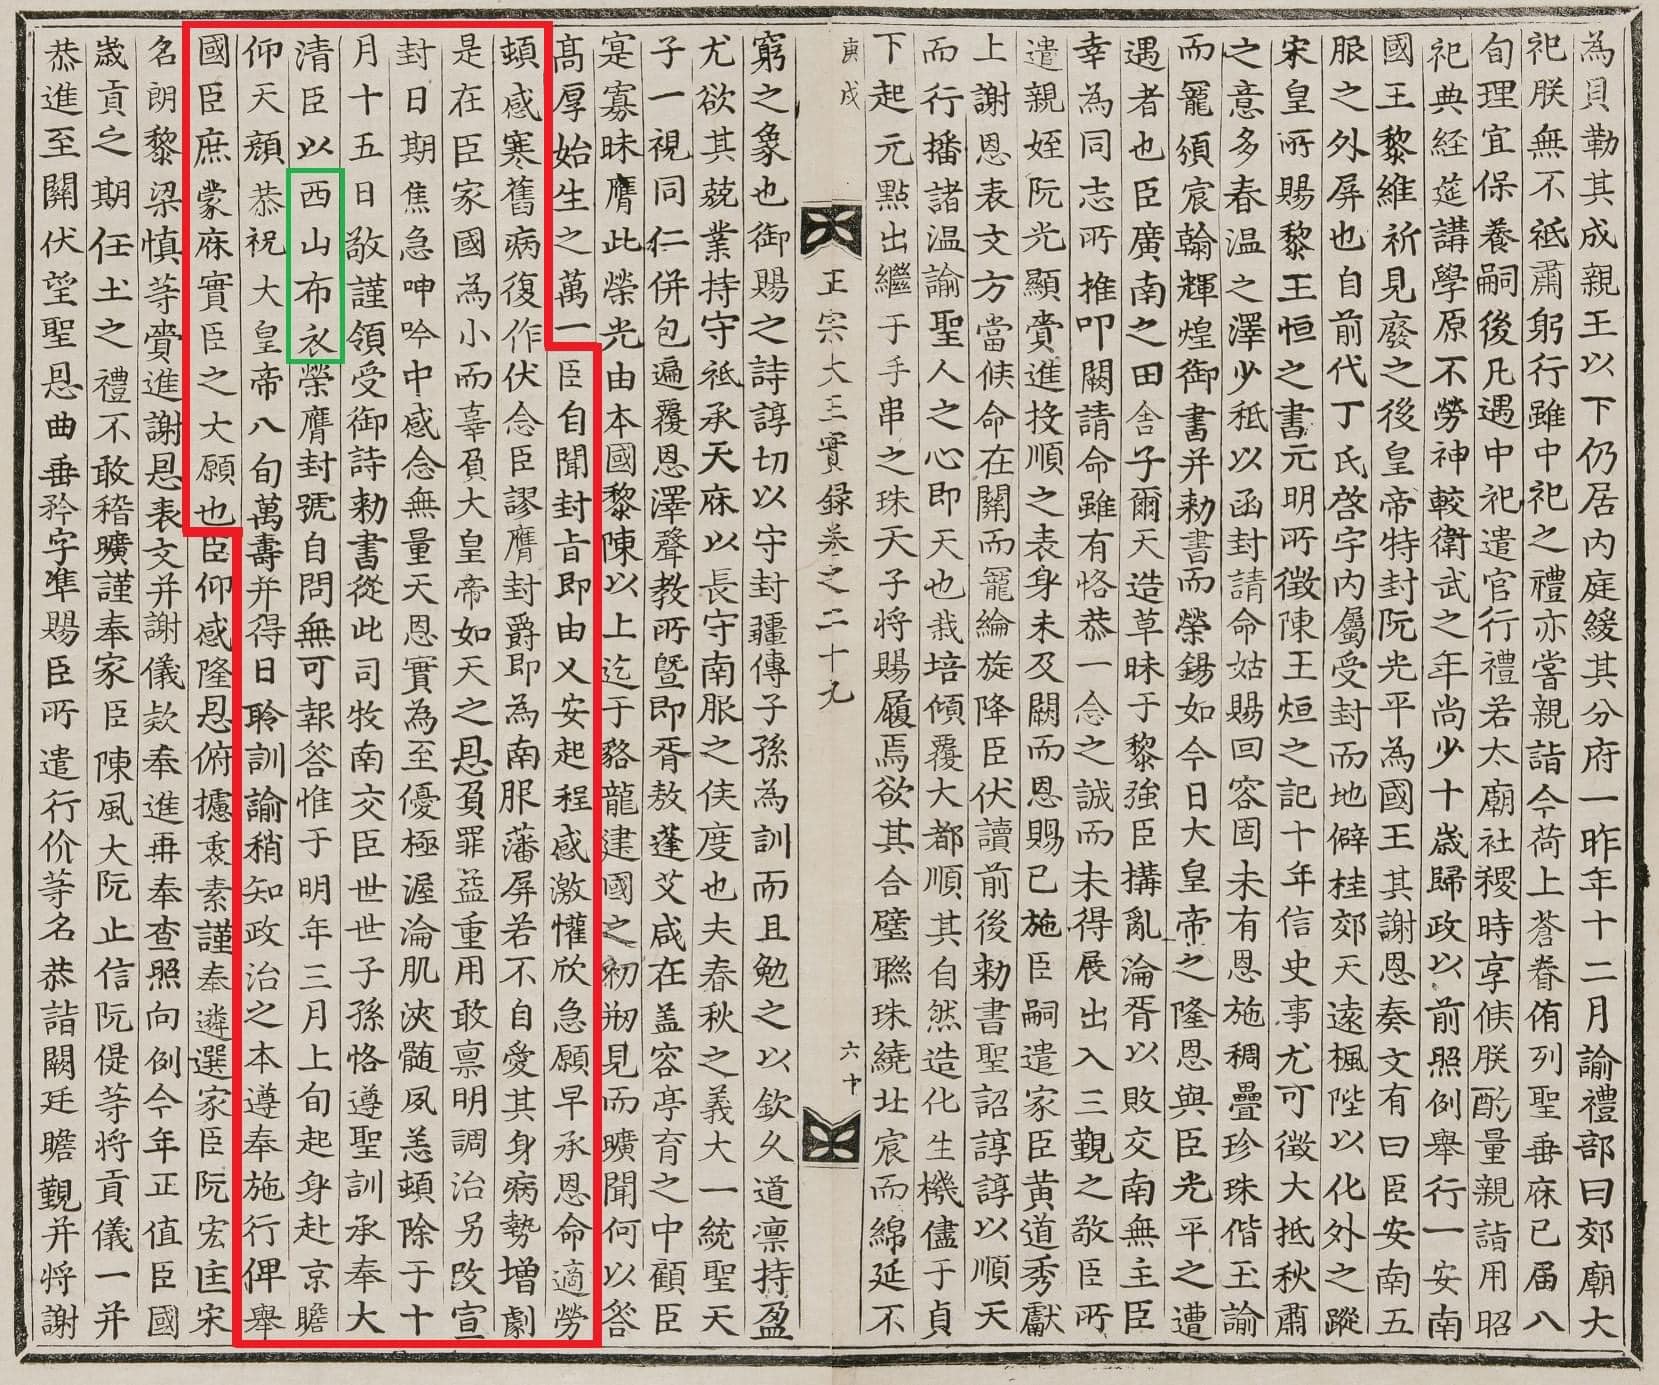 為貝勒其成親王以下仍居內庭緩其分府一昨年十二月諭禮部曰郊廟大
祀朕無不祗肅躬行雖中祀之禮亦嘗親詣今荷上蒼眷侑列聖垂庥已届八
旬理宜保養嗣後凡遇中祀遣官行禮若太廟社稷時享俟朕酌量親詣用昭
祀典経筵講學原不勞神較衛武之年尚少十歲歸政以前照例舉行一安南
國王黎維祈見廢之後皇帝特封阮光平為國王其謝恩奏文有曰臣安南五
服之外屏也自前代丁氏啓宇內屬受封而地僻桂郊天遠楓陛以化外之蹤
宋皇所賜黎王恒之書元明所徵陳王烜之記十年信史事尤可徵大抵秋肅
之意多春溫之澤少秪以函封請命姑賜回容固未有恩施稠疊珍珠偕玉諭
而寵頒宸翰輝煌御書并勅書而榮錫如今日大皇帝之隆恩與臣光平之遭
遇者也臣廣南之田舍子爾天造草昧于黎強臣搆亂淪胥以敗交南無主臣
幸為同志所推叩關請命雖有恪恭一念之誠而未得展出入三觀之敬臣所
遣親姪阮光顯賫進投順之表身未及闕而恩賜已施臣嗣遣家臣黃道秀獻
上謝恩表文方當候命在關而寵綸旋降臣伏讀前後勅書聖詔諄諄以順天
而行播諸溫諭聖人之心即天也栽培傾覆大都順其自然造化生機儘于貞
下起元點出繼于手串之珠天子將賜履焉欲其合璧聯珠繞北宸而綿延不
庚戌 正宗大王實錄卷之二十九 六十
窮之象也御賜之詩諄切以守封疆傳子孫為訓而且勉之以欽久道凛持盈
尤欲其兢業持守祗承天庥以長守南服之侯度也夫春秋之義大一統聖天
子一視同仁併包遍覆恩澤聲教所曁即胥敖蓬艾咸在盖容亭育之中顧臣
寔寡昧膺此榮光由本國黎陳以上迄于貉龍建國之初刱見而曠聞何以答
高厚始生之萬一臣自聞封旨即由乂安起程感激懽欣急願早承恩命適勞
頓感寒舊病復作伏念臣謬膺封爵即為南服藩屏若不自愛其身病勢增劇
是在臣家國為小而辜負大皇帝如天之恩負罪益重用敢禀明調治另改宣
封日期焦急呻吟中感念無量天恩實為至優極渥淪肌浹髓夙恙頓除于十
月十五日敬謹領受御詩勅書從此司牧南交臣世世子孫恪遵聖訓承奉大
清臣以西山布衣榮膺封號自問無可報答惟于明年三月上旬起身赴京瞻
仰天顏恭祝大皇帝八旬萬壽并得日聆訓諭稍知政治之本遵奉施行俾舉
國臣庶蒙庥實臣之大願也臣仰感隆恩俯攄衷素謹奉遴選家臣阮宏匡宋
名朗黎梁慎等賫進謝恩表文并謝儀欵奉進再奉查照向例今年正值臣國
歲貢之期任土之禮不敢稽曠謹奉家臣陳風大阮止信阮偍等將貢儀一并
恭進至關伏望聖恩曲垂矜字準賜臣所遣行价等名恭詣闕廷瞻覲并將謝